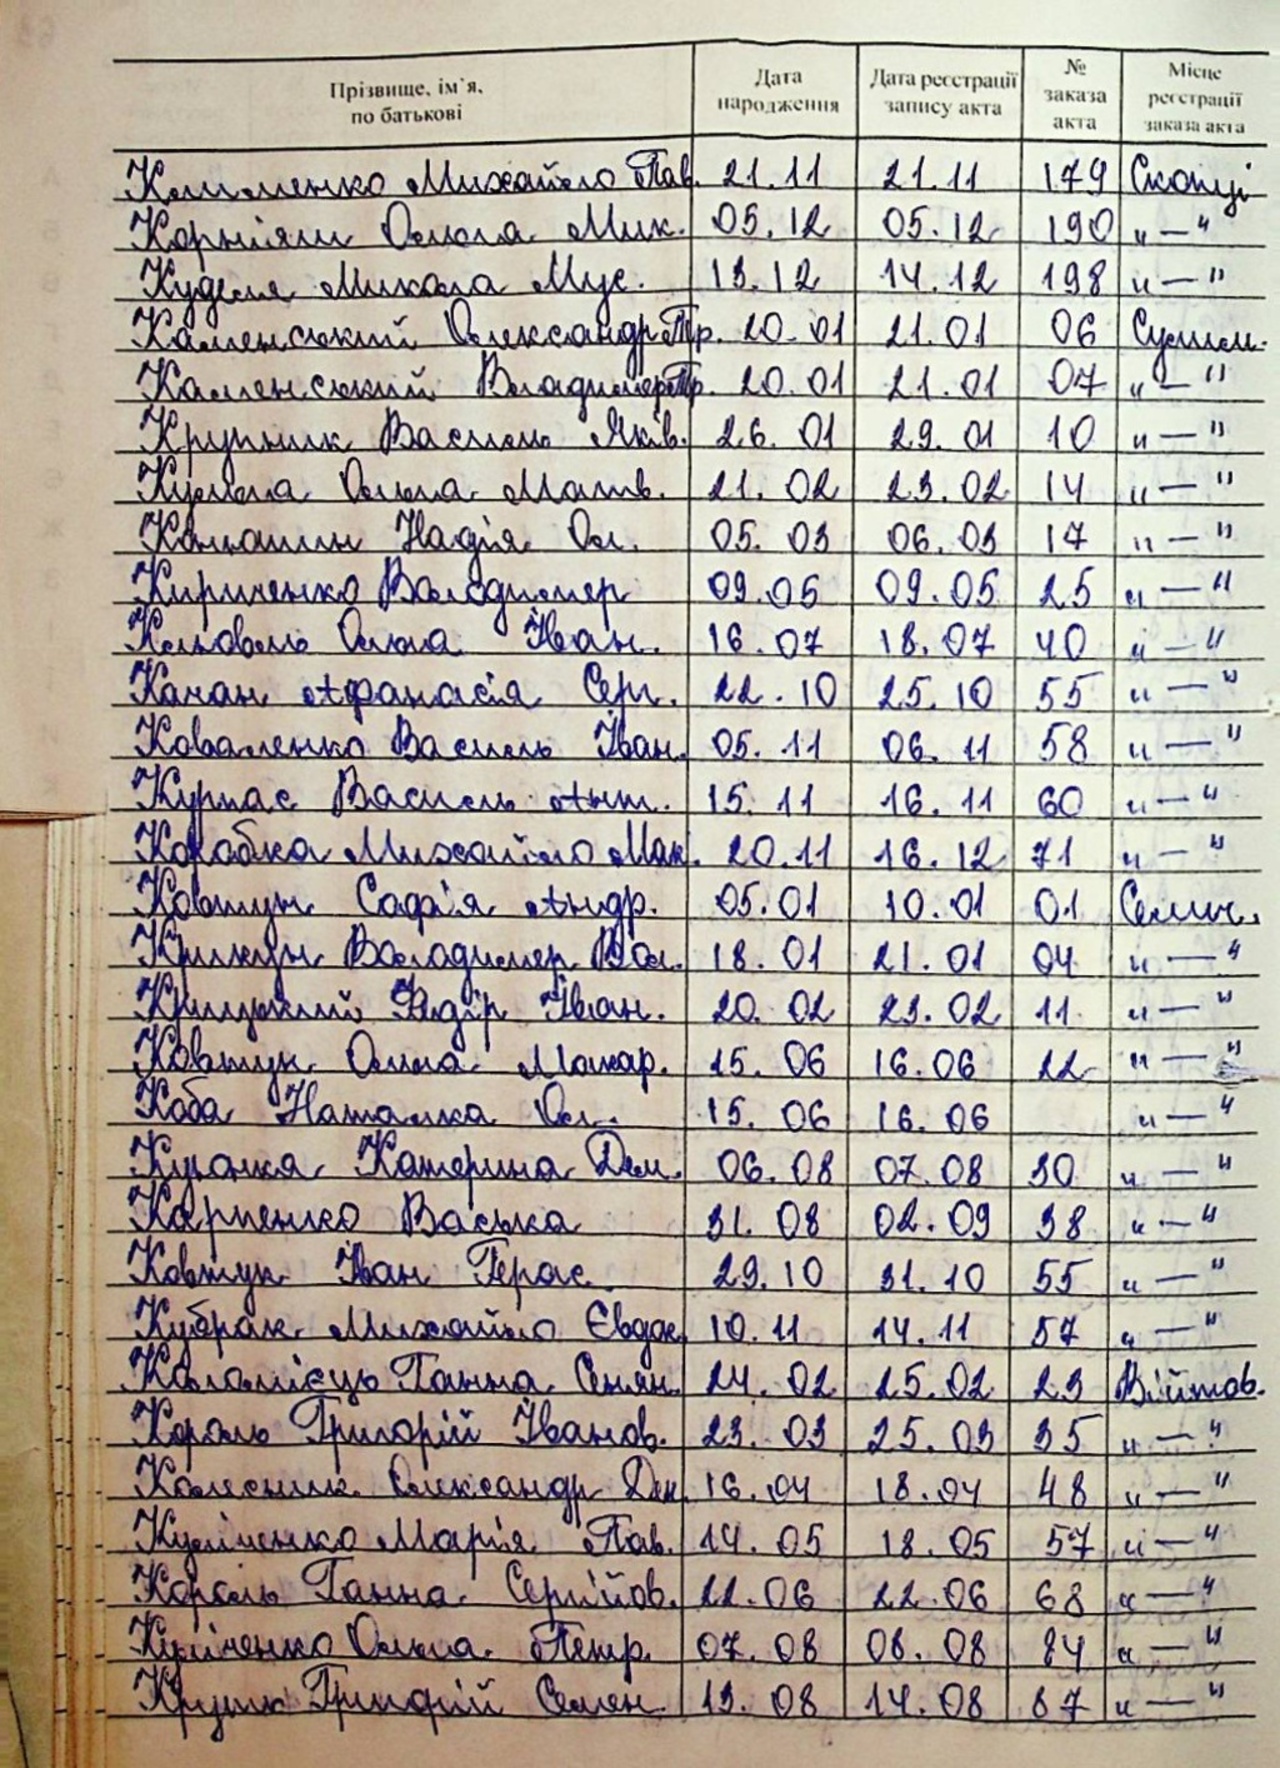 Прізвище, ім'я, по батькові Дата народження Дата реєстрації запису акта № заказа акта Місце реєстрації заказа акта
Клименко Михайло Пав. 21.11 21.11 179 Скопці
Корніяш Ольга Мик. 05.12 05.12 190 "—"
Куделя Микола Мус. 13.12 14.12 198 "—"
Каменський Олександр Гр. 20.01 21.01 06
Каменський Владимер Гр. 20.01 21.01 07 "—"
Крупник Василь Яків. 26.01 29.01 10 "—"
Ольга Матв. 21.02 23.02 14 "—"
Надія Ол. 05.03 06.03 17 "—"
Кириченко Володимер 09.05 09.05 25 "—"
Ольга Іван. 16.07 18.07 40 "—"
Качан Афанасія Серг. 22.10 25.10 55 "—"
Коваленко Василь Іван. 05.11 06.11 58 "—"
Курпас Василь Ант. 15.11 16.11 60 "—"
Коробка Михайло Мак. 20.11 16.12 71 "—"
Ковтун Софія Андр. 05.01 10.01 01 Селич.
Криклун Володимер Вол. 18.01 21.01 04 "—"
Крицький Федір Іван. 20.02 23.02 11 "—"
Ковтун Ольга Макар. 15.06 16.06 22 "—"
Коба Наталка Ол. 15.06 16.06 "—"
Катерина Дем. 06.08 07.08 30 "—"
Карпенко Васька 31.08 02.09 38 "—"
Ковтун Іван Герас. 29.10 31.10 55 "—"
Кубрак Михайло Євдок. 10.11 14.11 57 "—"
Коломієць Ганна 24.02 25.02 23 Війтов.
Король Григорій Іванов. 23.03 25.03 35 "—"
Колесник Олександр 16.04 18.04 48 "—"
Куліченко Марія Пав. 14.05 18.05 57 "—"
Король Ганна Сергійов. 22.06 22.06 68 "—"
Куліченко Ольга Петр. 07.08 08.08 84 "—"
Григорій Семен. 13.08 14.08 87 "—"